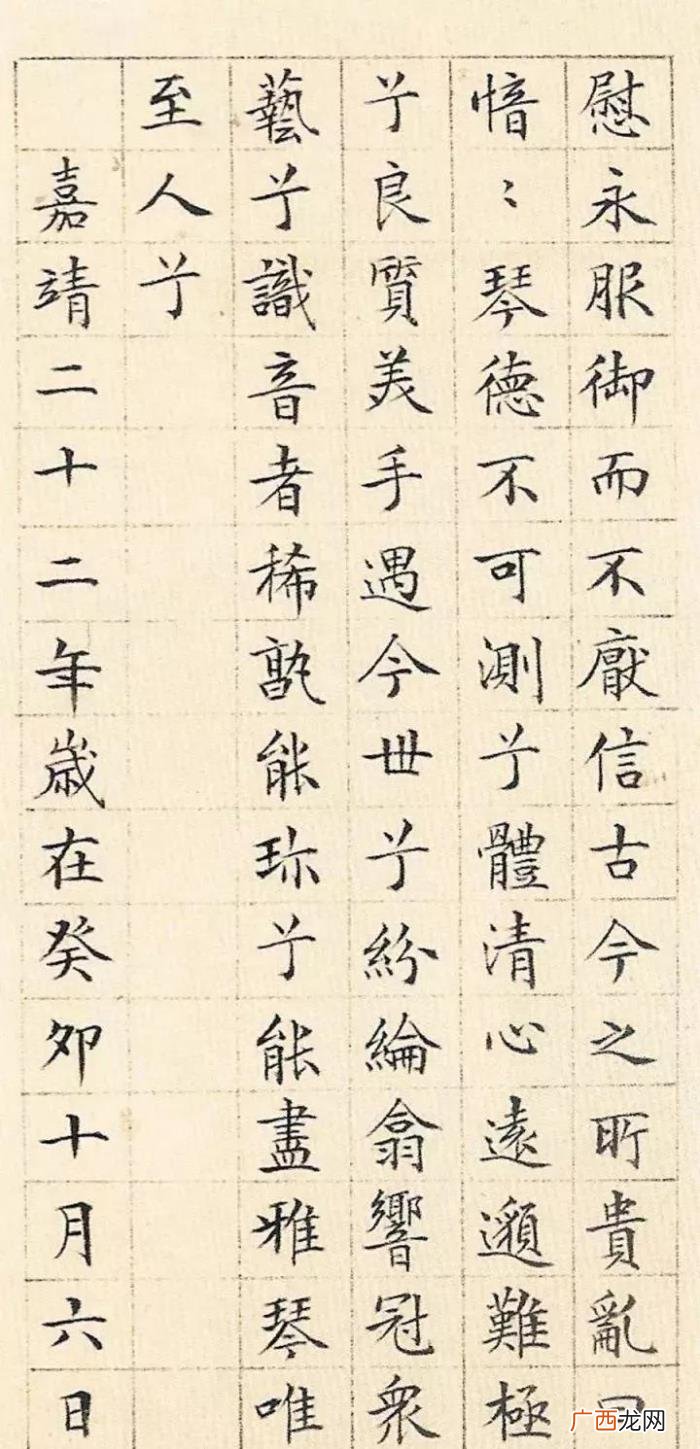 慰永服御而不厭信古今之所貴亂曰
愔〻琴德不可測兮體清心遠邈難極
兮良質美手遇今世兮紛綸翕響冠衆
藝兮識音者稀孰能珎兮能盡雅琴唯
至人兮
嘉靖二十二年歲在癸卯十月六日
广西龙网